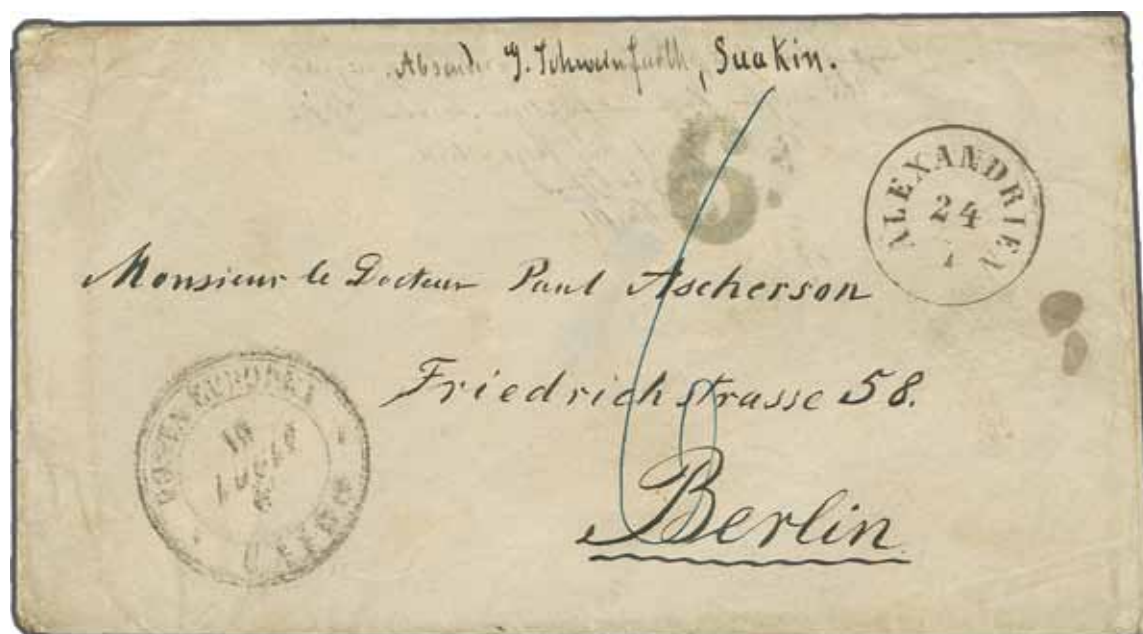 Absender G. Schweinfurth, Suakin.
6
ALEXANDRIEN
24
Monsieur le Docteur Paul Ascherson
Friedrichstrasse 58.
Berlin
POSTA EUROPEA
19
LUGLIO